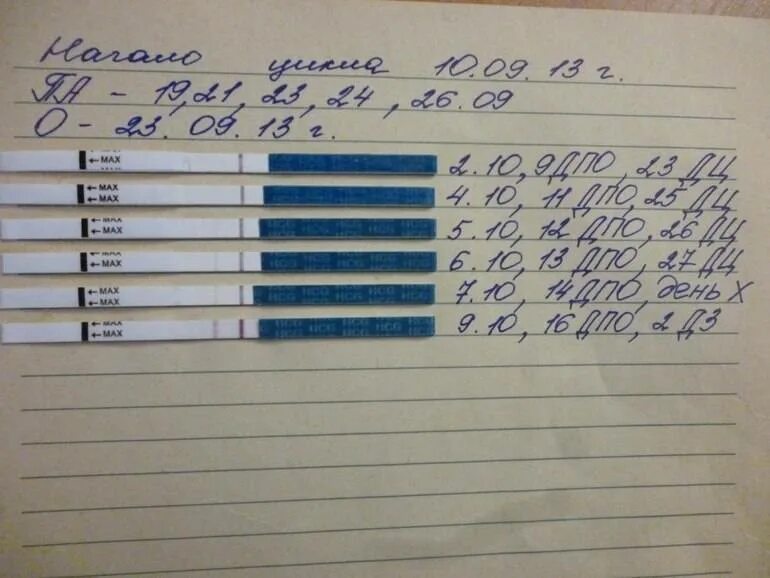 Начало цикла 10.09.13 г.
ПА - 19, 21, 23, 24, 26.09
О - 23.09.13 г.
←MAX 2.10, 9 ДПО, 23 ДЦ
←MAX 4.10, 11 ДПО, 25 ДЦ
←MAX ←MAX HCG HCG HCG HCG 5.10, 12 ДПО, 26 ДЦ
←MAX ←MAX HCG HCG HCG 6.10, 13 ДПО, 27 ДЦ
←MAX ←MAX HCG HCG HCG 7.10, 14 ДПО, день X
←MAX ←MAX HCG HCG HCG HCG 9.10, 16 ДПО, 2 ДЗ